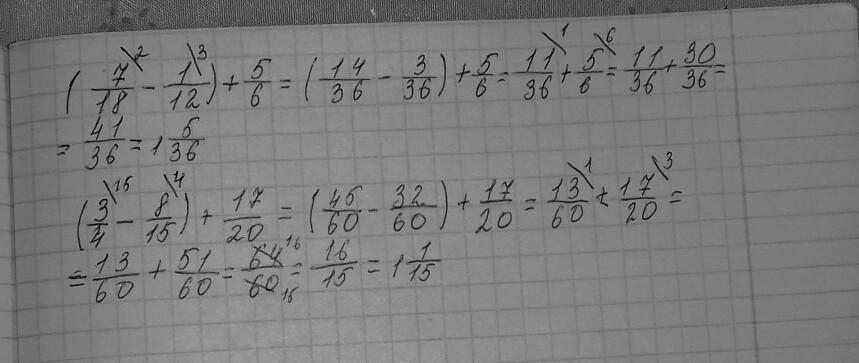 (7\2/18 - 1\3/12) + 5/6 = (14/36 - 3/36) + 5/6 = 11\1/36 + 5\6/6 = 11/36 + 30/36 =
= 41/36 = 1 5/36
(3\15/4 - 8\4/15) + 17/20 = (45/60 - 32/60) + 17/20 = 13\1/60 + 17\3/20 =
= 13/60 + 51/60 = 64 16/60 15 = 16/15 = 1 1/15